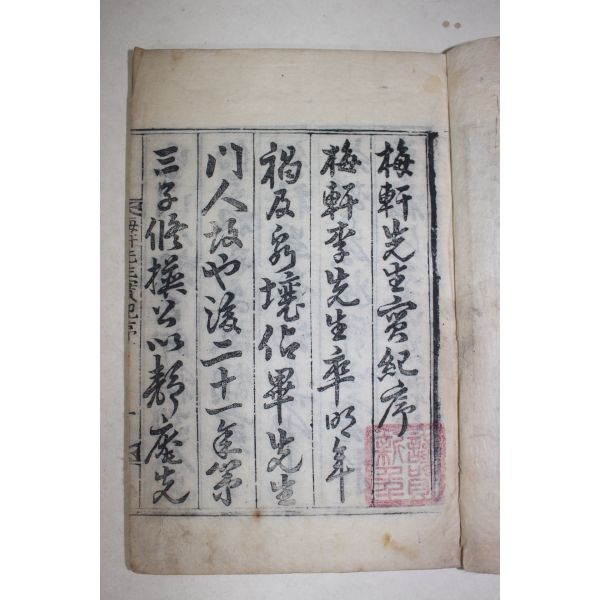 梅軒先生實紀序
梅軒李先生卒明年
禍及泉壤佔畢先生
門人故也後二十一年第
三子脩撰公以都廳先
梅軒先生實紀序